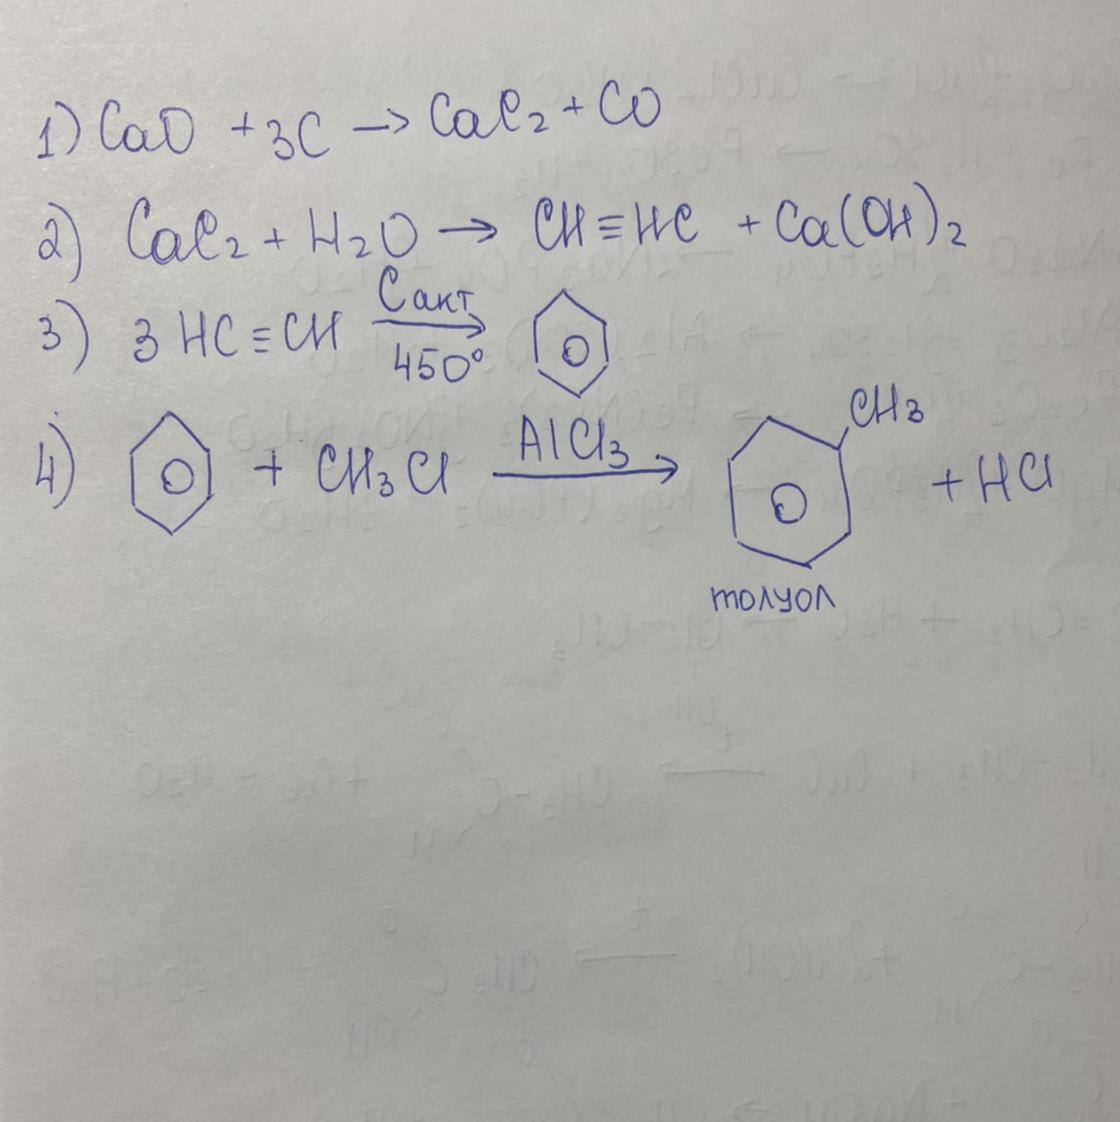 1) CaO + 3C → CaC₂ + CO
2) CaC₂ + H₂O → CH≡HC + Ca(OH)₂
3) 3 HC≡CH Cакт. 450° →
4) + CH₃Cl AlCl₃ → CH₃ + HCl
толуол